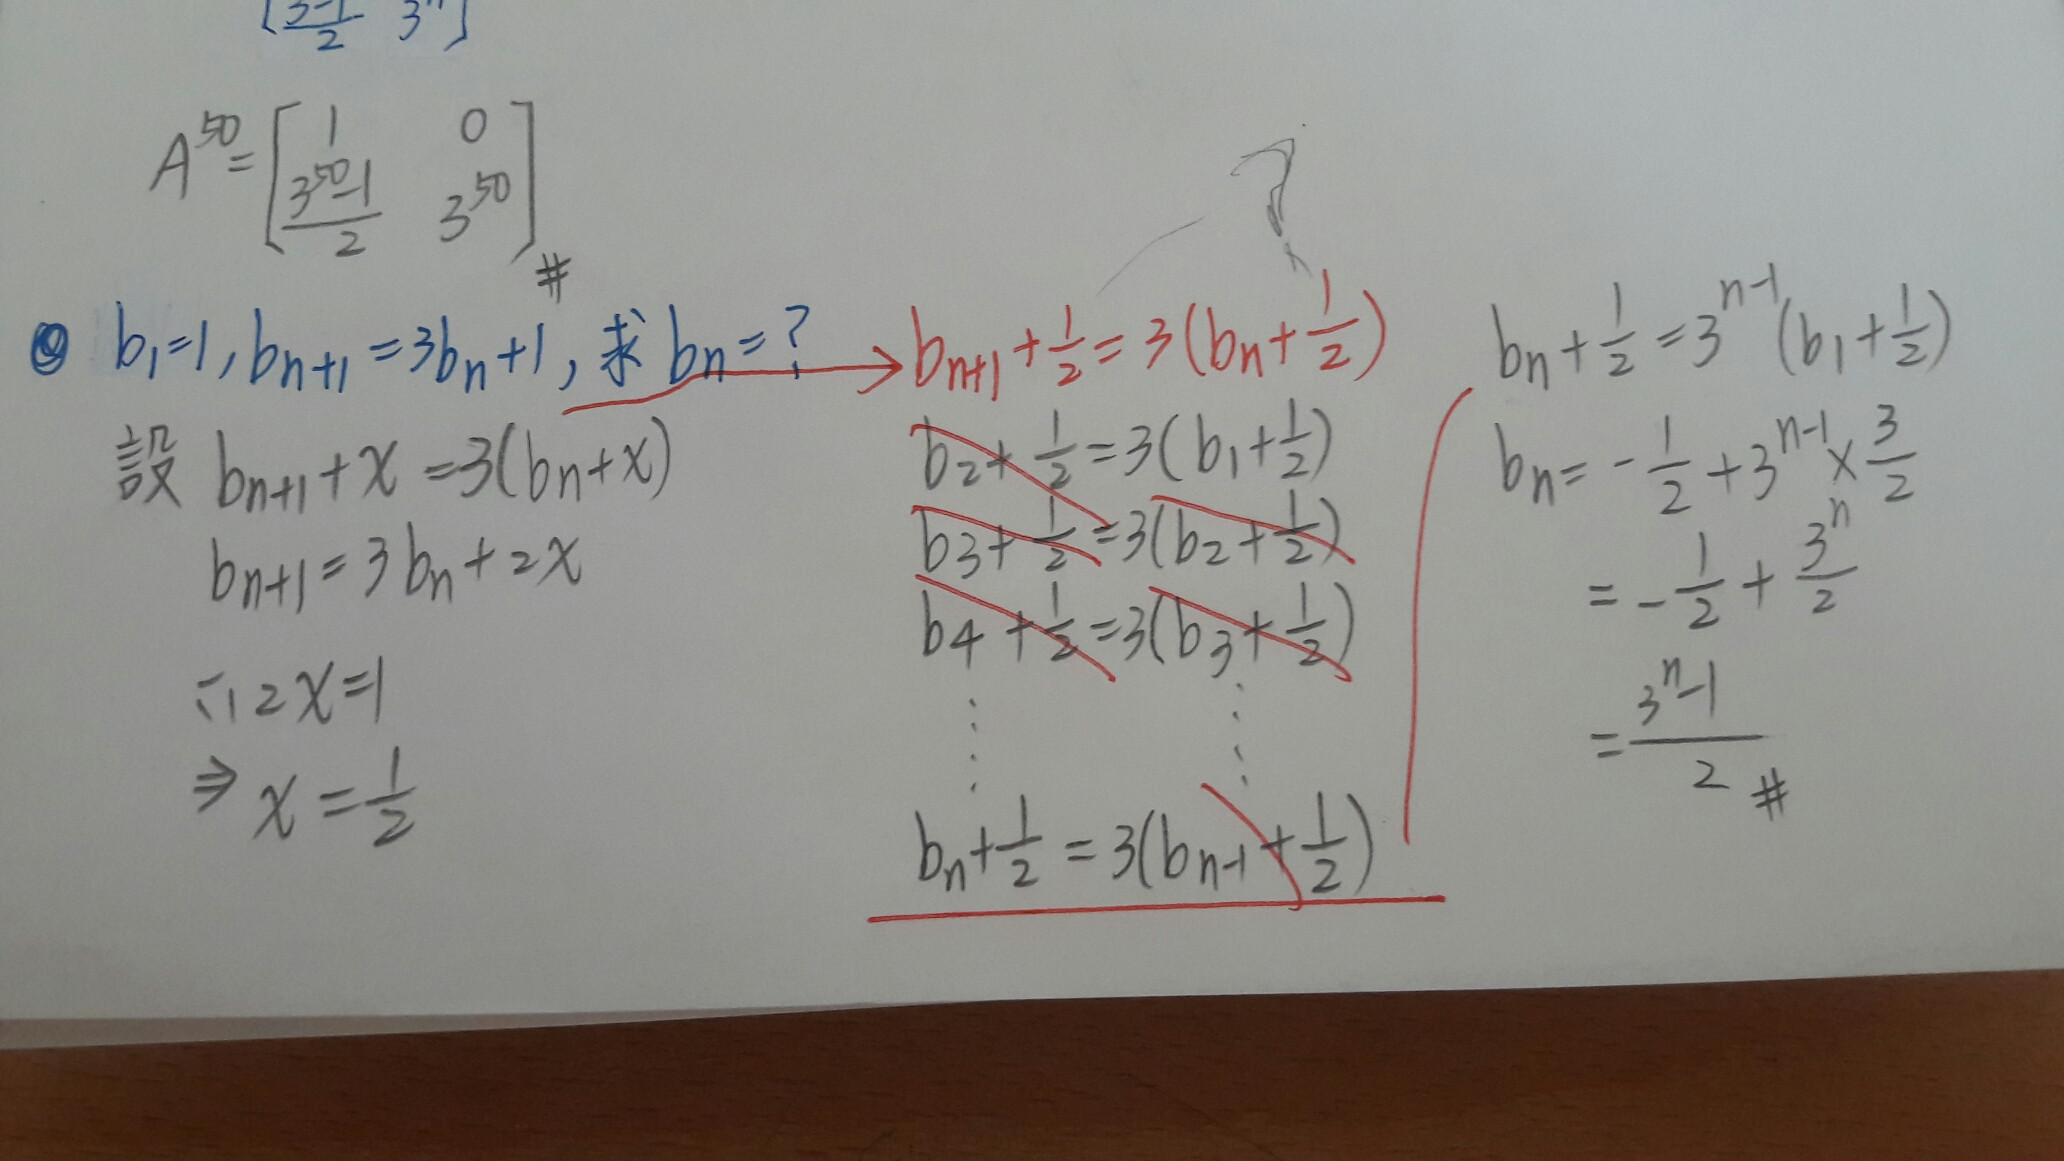 [3-1/2 3ⁿ]
A⁵⁰=[1 0
(3⁵⁰-1)/2 3⁵⁰] #
?
b₁=1, bₙ₊₁=3bₙ+1, 求 bₙ=?
設 bₙ₊₁+x=3(bₙ+x)
bₙ₊₁=3bₙ+2x
∵2x=1
⇒ x=1/2
→ bₙ₊₁+1/2=3(bₙ+1/2)
b₂+1/2=3(b₁+1/2)
b₃+1/2=3(b₂+1/2)
b₄+1/2=3(b₃+1/2)
⋮ ⋮
bₙ+1/2=3(bₙ₋₁+1/2)
bₙ+1/2=3ⁿ⁻¹(b₁+1/2)
bₙ=-1/2+3ⁿ⁻¹×3/2
=-1/2+3ⁿ/2
=(3ⁿ-1)/2 #